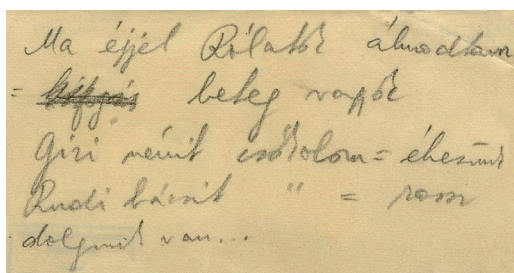 Ma éjjel Rólatok álmodtam
= beteg vagyok
Gizi nénit csókolom = éhesünk
Rudi bácsit " = rossz
dolgunk van...